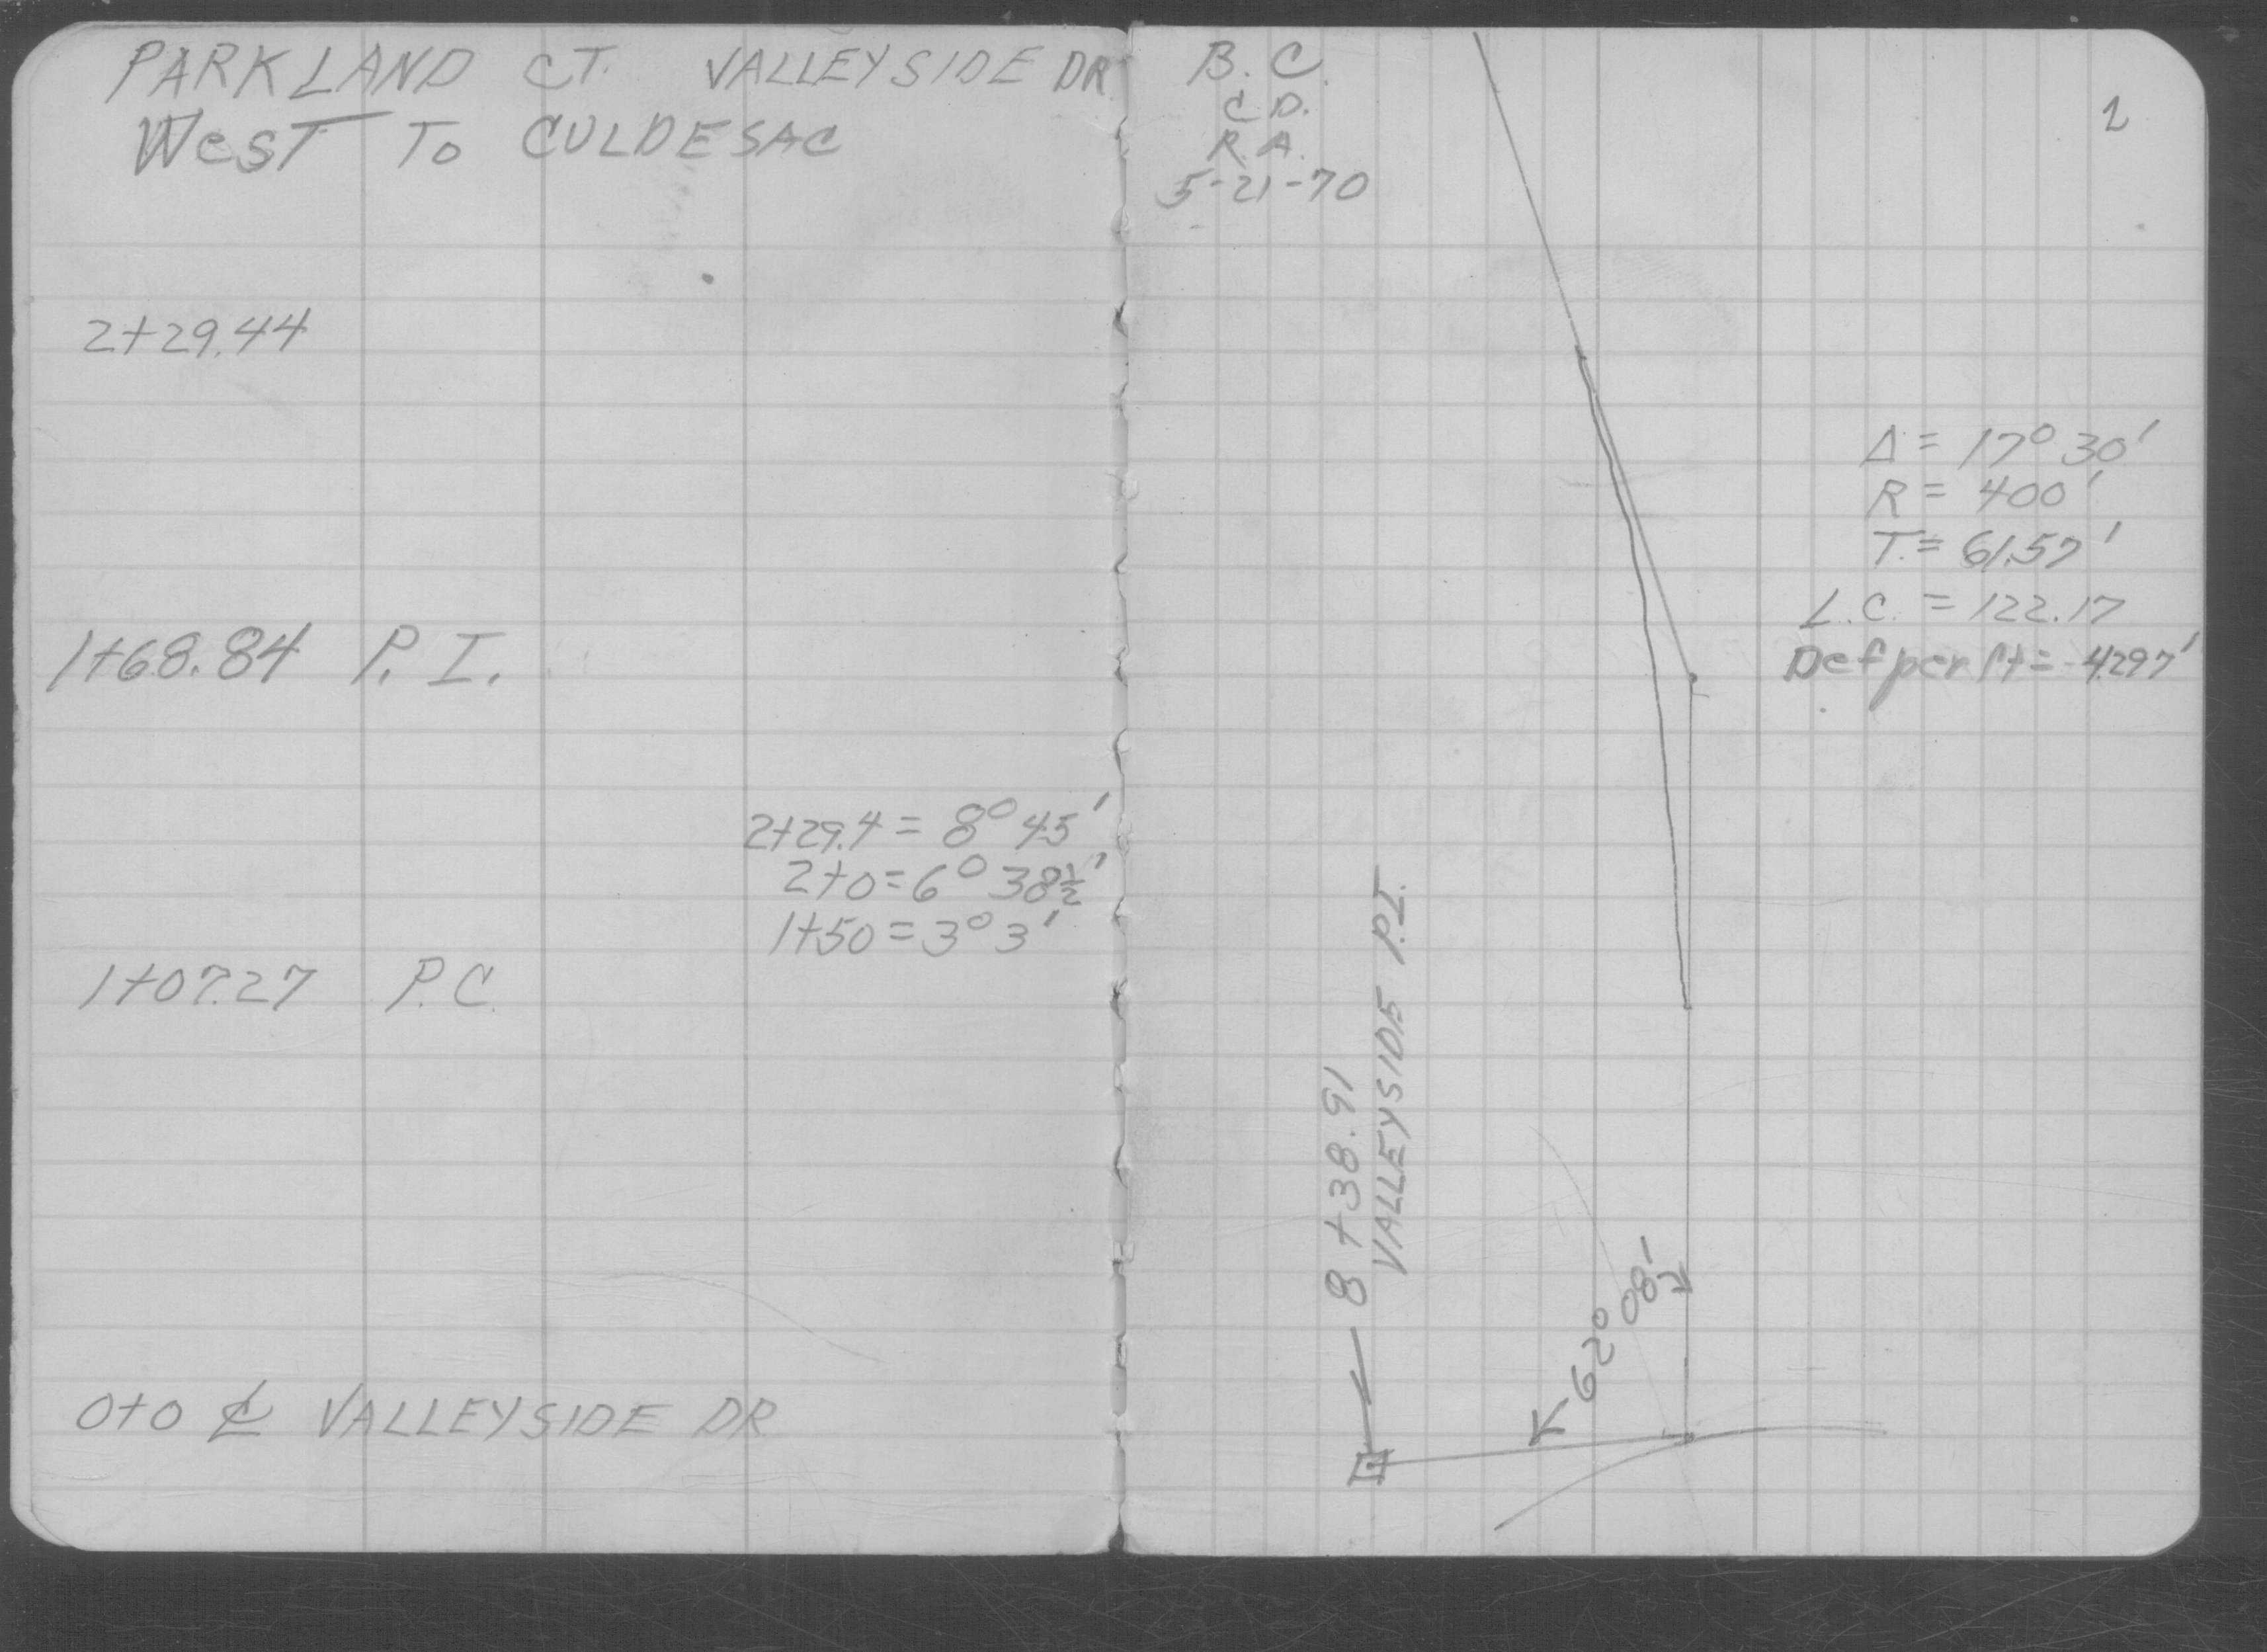 PARKLAND CT. VALLEYSIDE DR
West To CULDESAC
2+29.44
1+68.84 P. I.
2+29.4 = 8° 45'
2+0 = 6° 38½'
1+50 = 3° 3'
1+07.27 P.C.
0+0 ℄ VALLEYSIDE DR
B. C.
C D.
R. A.
5-21-70
Δ = 17° 30'
R = 400'
T. = 61.57'
L.C. = 122.17
Def per ft = 4.297'
8 + 38.91
VALLEYSIDE P.I.
62° 08'